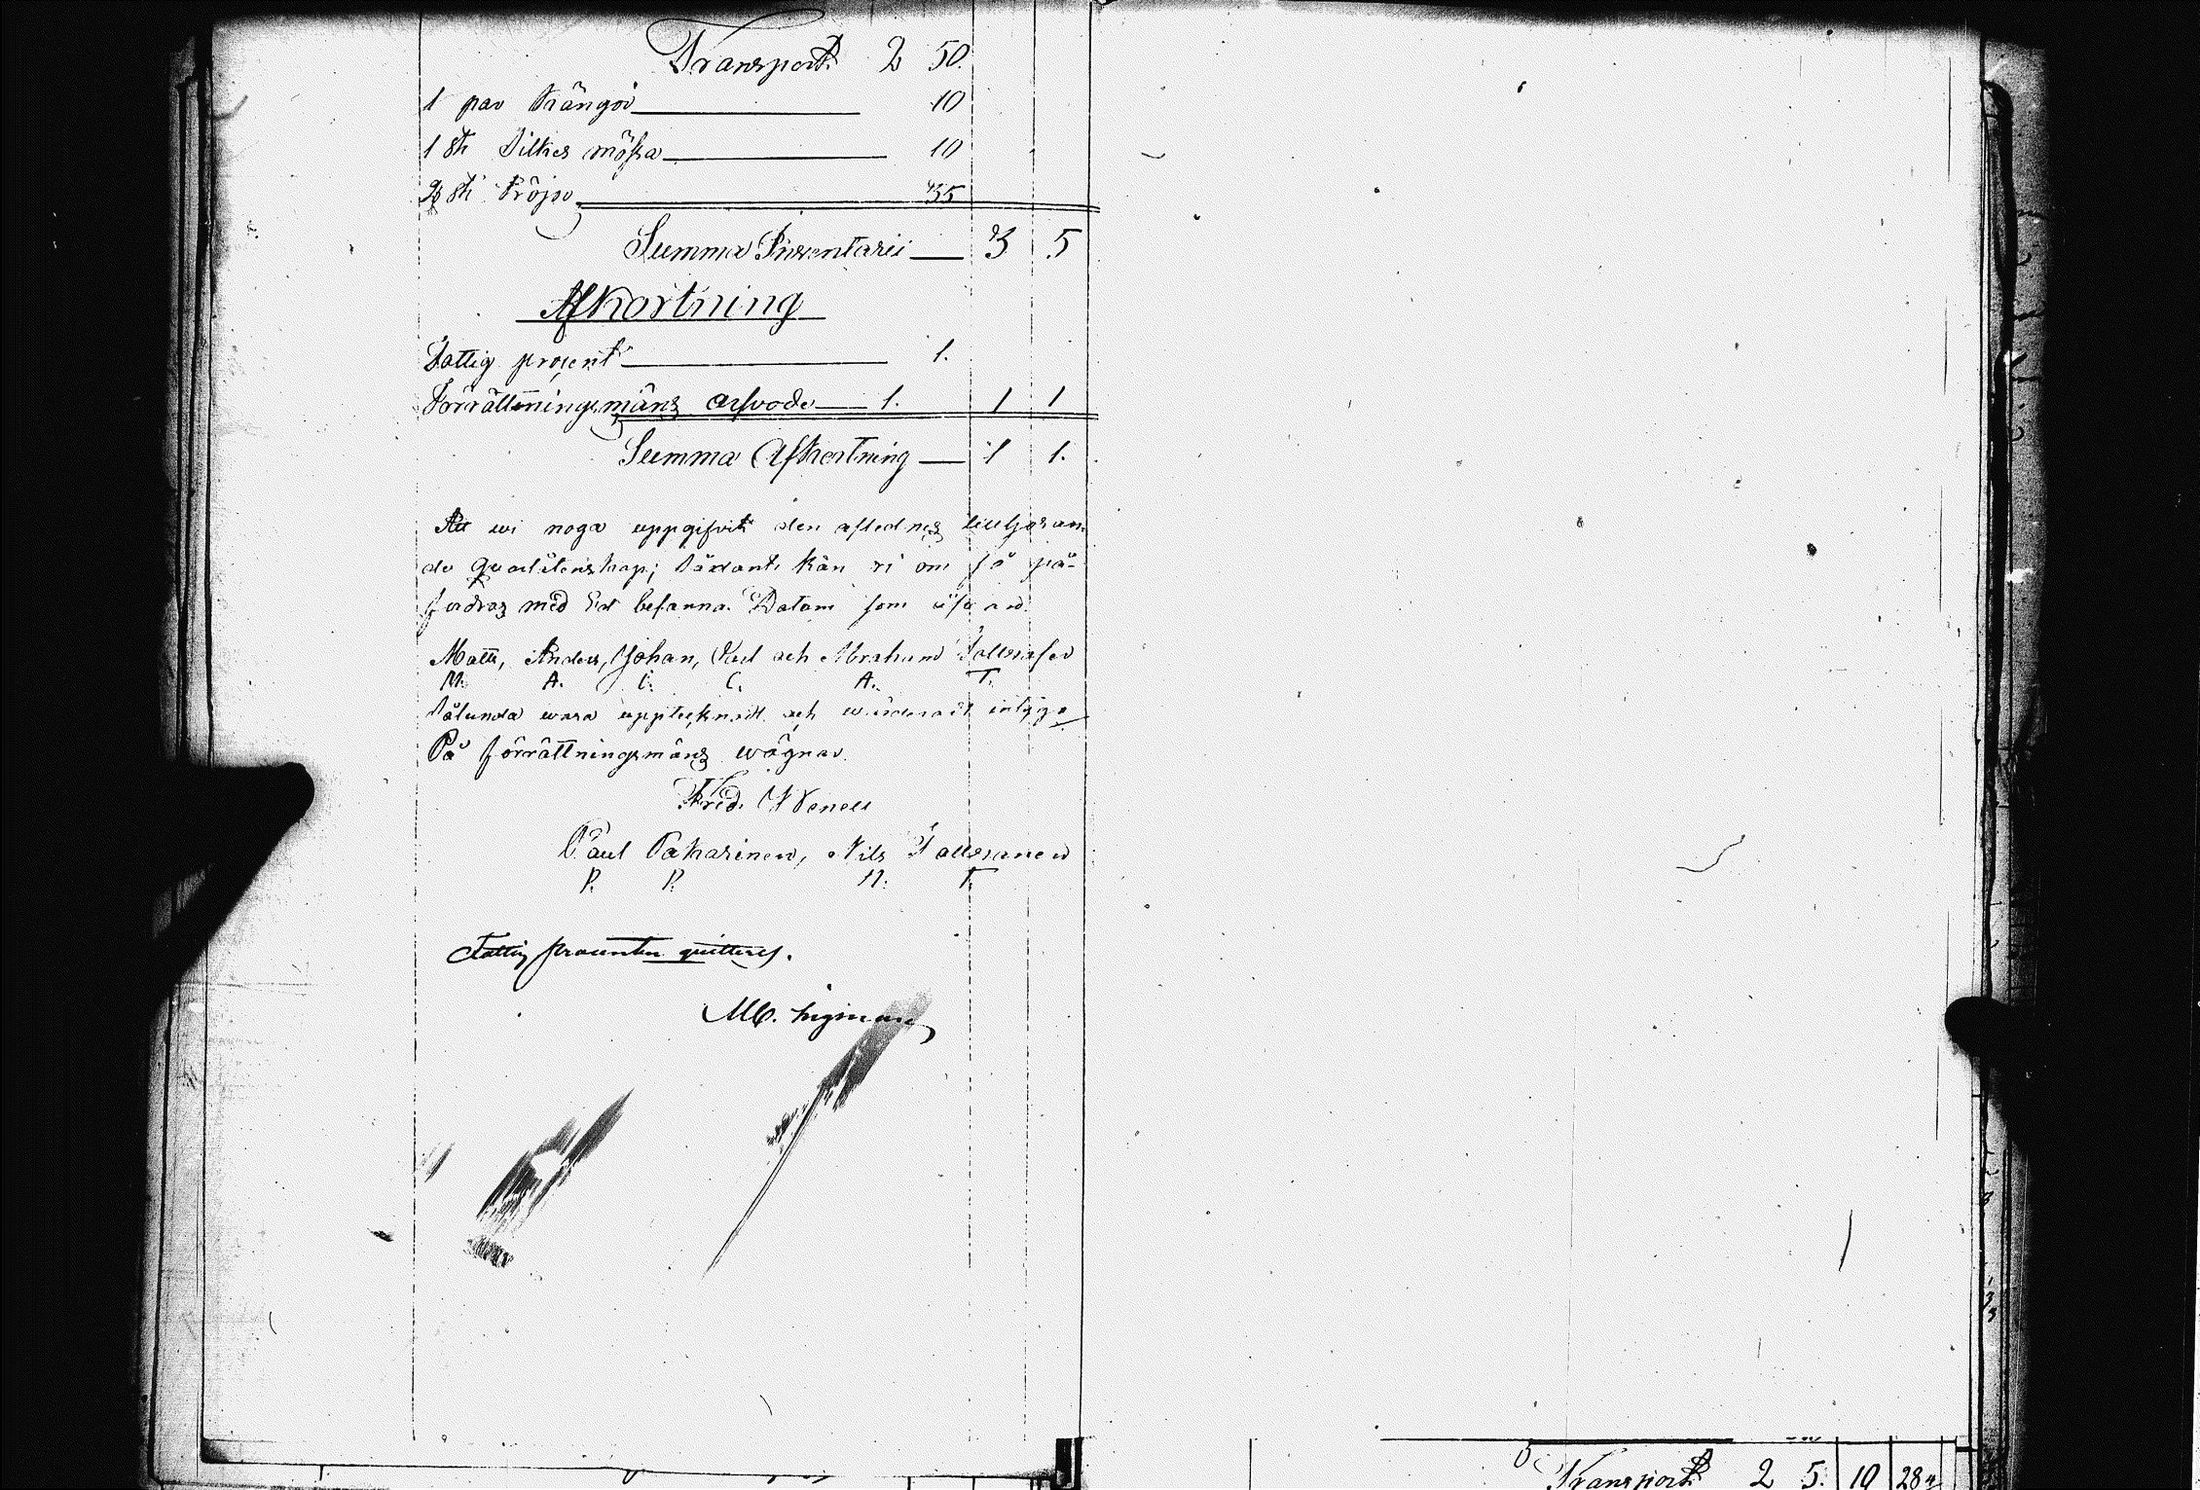 Transport. 2 50.
1 par Trängor 10
1 st Silkes mössa 10
2 st Tröjor 35
Summa Inventarii 3 5
Afkortning
Fattig prosent 1.
Förrättningsmäns arfvode 1. 1 1
Summa Afkortning 1 1.
Att wi noga uppgifvit den aflednes
de qvarlåtenskap; sådant kan vi om så på-
fordras med Ed besanna. Datum som ofvan.
Matts, Anders, Johan, Carl och Abraham
M. A. J. C. A. T.
Sålunda vara upptecknadt och wärderadt intyga
På förrättningsmäns wägnar.
Fred. Wenell
Paul Pakarinen, Nils
P. P. N. T.
Fattig procenten quitteras.
Transport. 2 5. 19 28